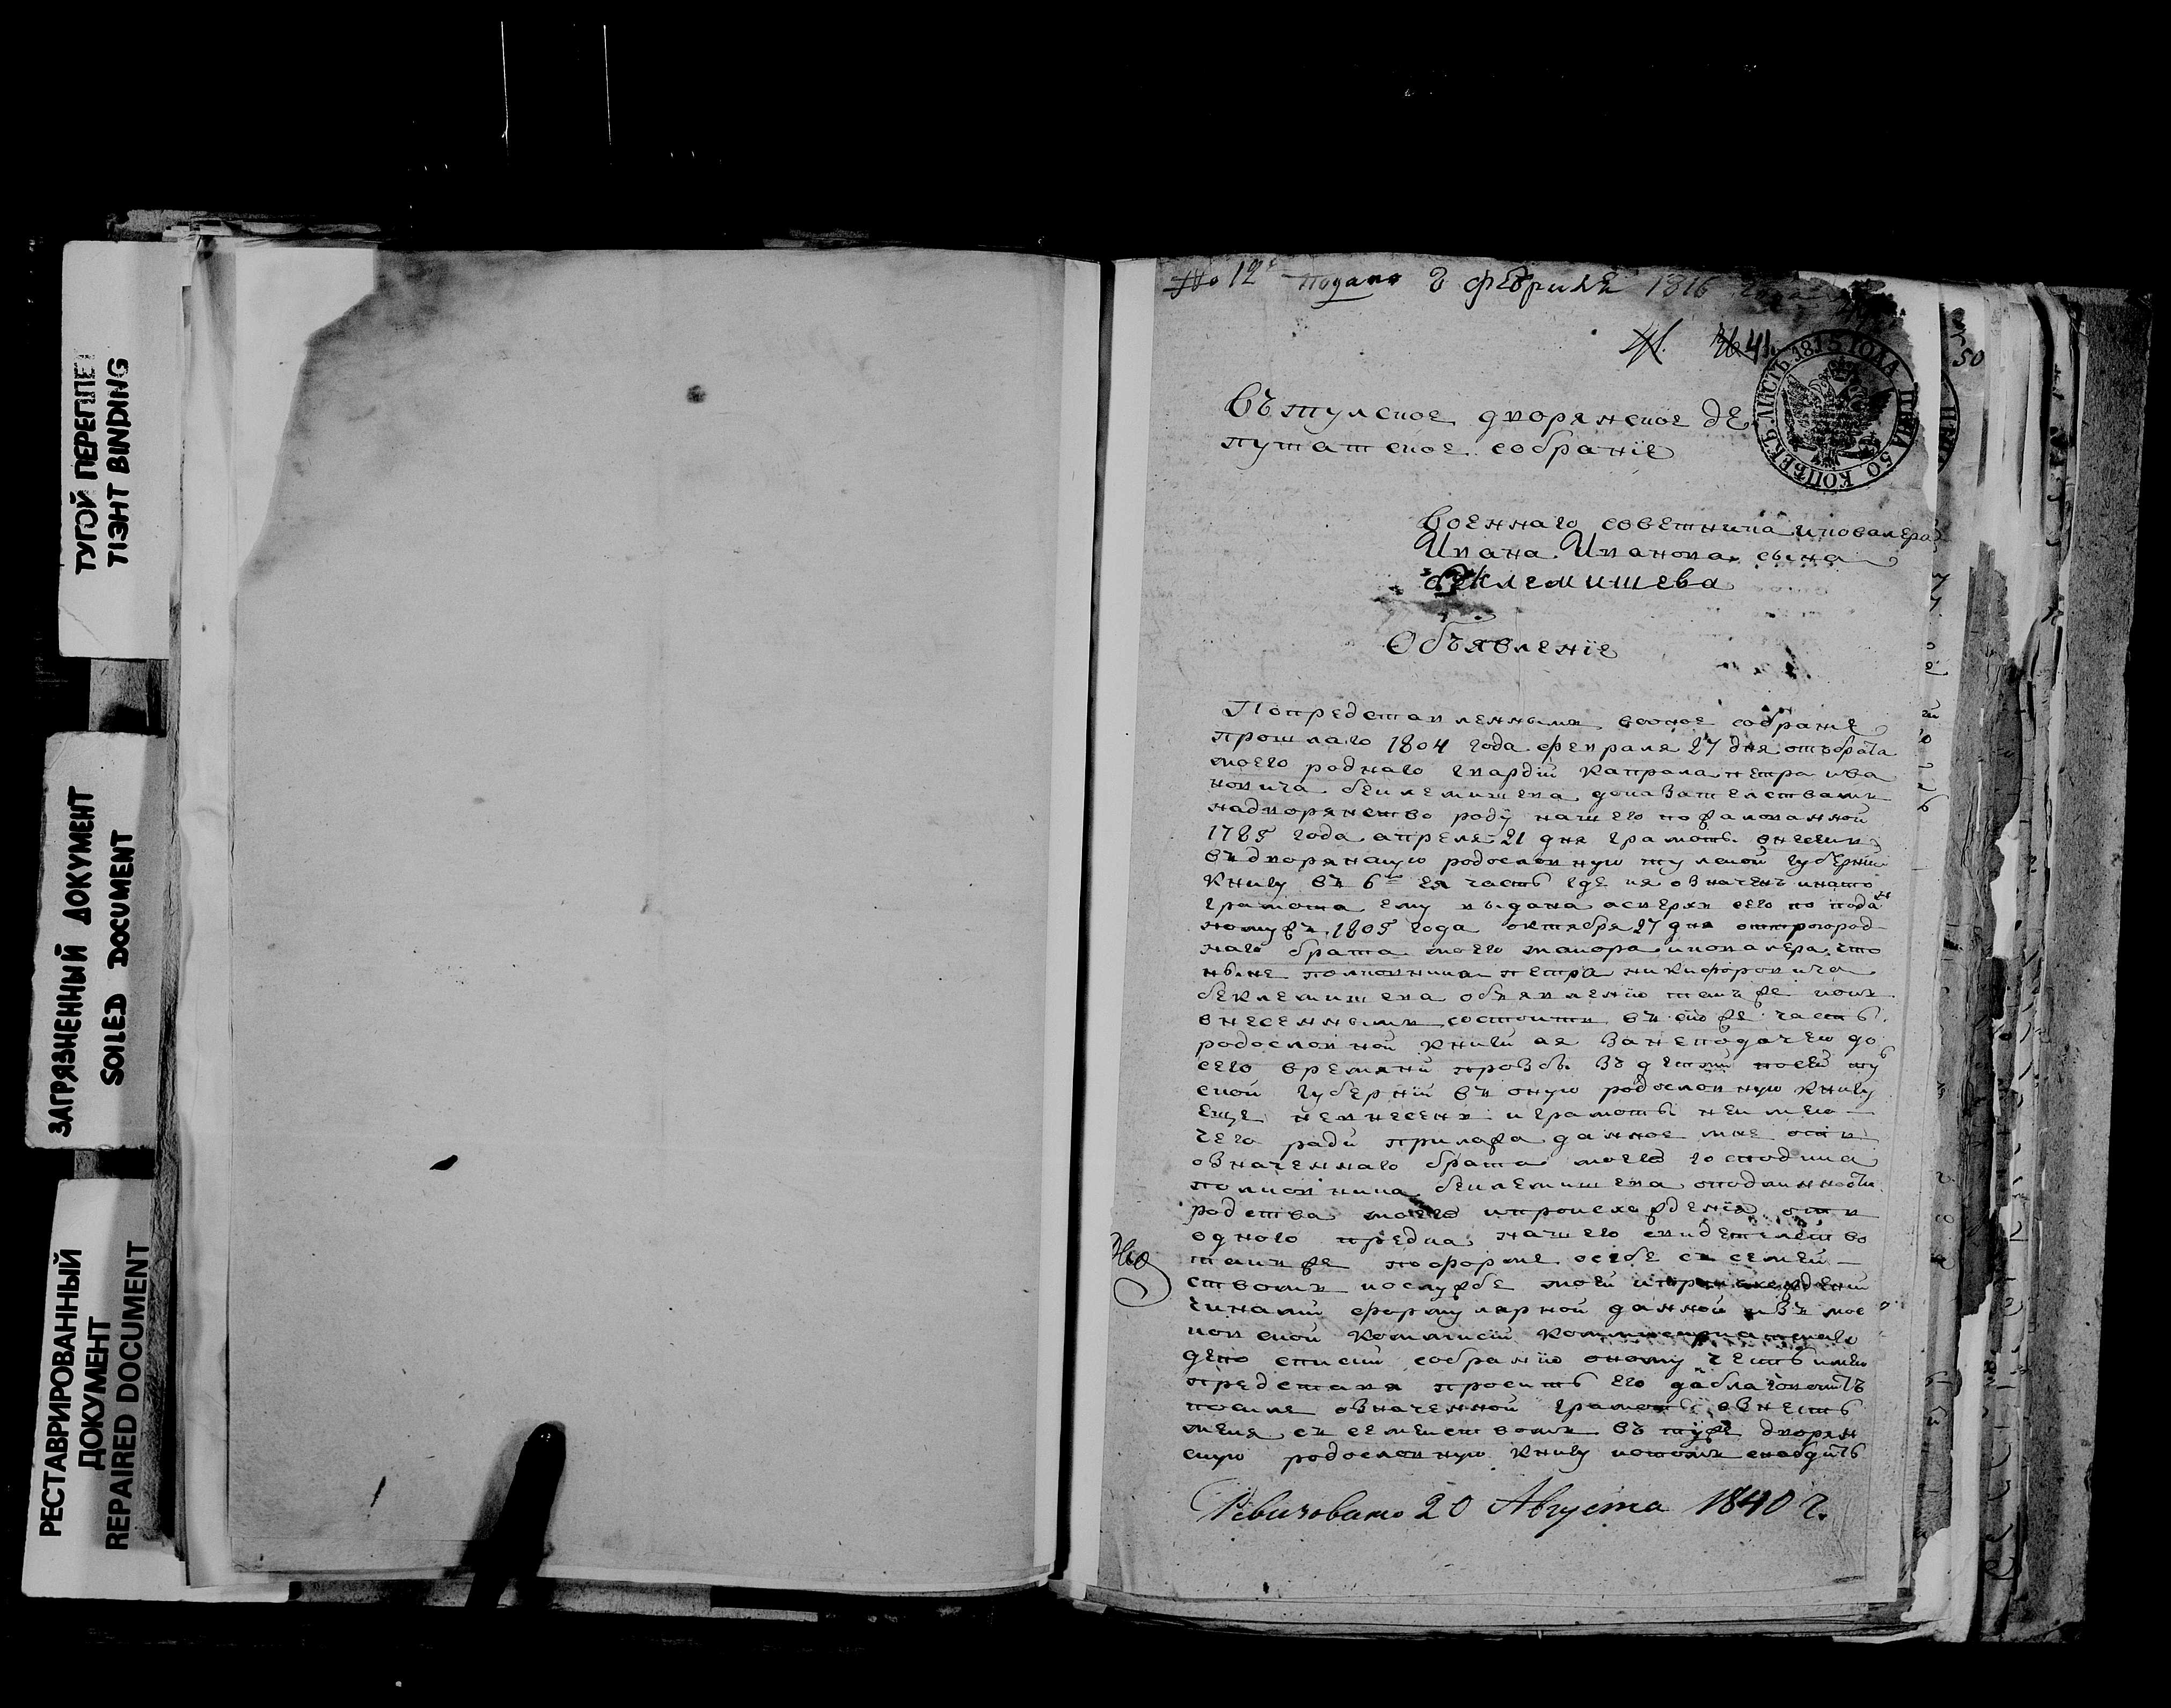 ТУГОЙ ПЕРЕПЛЕТ
TIЭHT BINDING
ЗАГРЯЗНЕННЫЙ ДОКУМЕНТ
SOILED DOCUMENT
РЕСТАВРИРОВАННЫЙ
ДОКУМЕНТ
REPAIRED DOCUMENT
No 12 Подано 8 февраля 1816 года
41.
50
ЛИСТЪ 1815 ГОДА ЦѢНА 50 КОПѢЕКЪ
Въ тулское дворянское де
путатское собрание
Военнаго советника и ковалера
Ивана Иванова сына
беклемишева
Объявление
По представленнымъ во оное собрание
прошлаго 1804 года февраля 27 дня отъ брата
моего роднаго гвардии капрала петра ива
новича беклемишева доказателствамъ
на дворянство роду нашего пожалованной
1785 года апреля 21 дня грамоты внесенъ
въ дворянскую родословную тулской губернии
книгу въ 6ю ея часть где и я означенъ и на то
грамота ему выдана а сверхъ сего по подан
ному въ 1805 года октября 27 дня отъ
наго брата моего маиора и ковалера что
ныне полковника петра никифоровича
беклемишева объявлению такъ же
внесеннымъ состоитъ въ сию же часть
родословной книги а я за неподачею до
сего времяни прозбы
ской губернии въ оную родословную книгу
еще не внесенъ и грамоты не имею
чего ради прилагая данное мне отъ
означеннаго брата моего господина
полковника беклемишева о подлинности
родства моего и происхождения отъ
одного предка нашего свидетелство
такъ же по форме о себе съ семей
ствомъ и о службе моей
чинами формулярной данной изъ мос
ковской коммисии коммисариатскаго
депо списки собранию оному честь имею
представя просить его да благоволитъ
по силе означенной грамоты внесть
меня съ семействомъ въ ту же дворян
скую родословную книгу и потомъ снабдить
Ревизовано 20 Августа 1840 г.